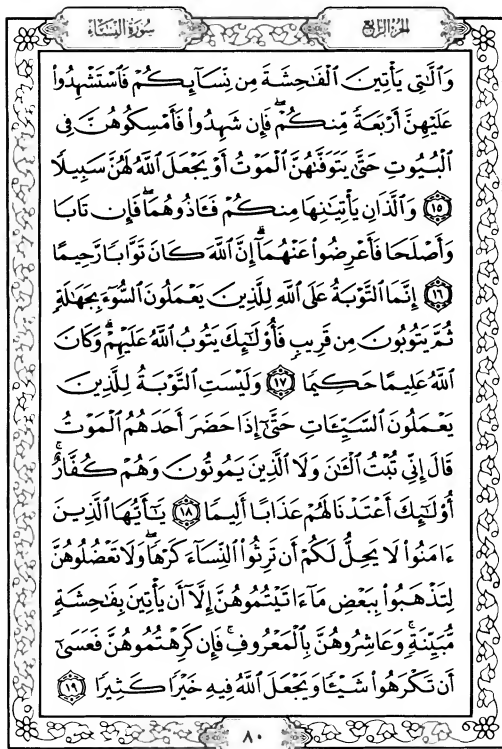 الجزء الرابع
سورة النساء
وَالَّٰتِى يَأۡتِينَ ٱلۡفَٰحِشَةَ مِن نِّسَآئِكُمۡ فَٱسۡتَشۡهِدُواْ
عَلَيۡهِنَّ أَرۡبَعَةٗ مِّنكُمۡۖ فَإِن شَهِدُواْ فَأَمۡسِكُوهُنَّ فِى
ٱلۡبُيُوتِ حَتَّىٰ يَتَوَفَّىٰهُنَّ ٱلۡمَوۡتُ أَوۡ يَجۡعَلَ ٱللَّهُ لَهُنَّ سَبِيلٗا
١٥ وَٱلَّذَانِ يَأۡتِيَٰنِهَا مِنكُمۡ فَـَٔاذُوهُمَاۖ فَإِن تَابَا
وَأَصۡلَحَا فَأَعۡرِضُواْ عَنۡهُمَآۗ إِنَّ ٱللَّهَ كَانَ تَوَّابٗا رَّحِيمًا
١٦ إِنَّمَا ٱلتَّوۡبَةُ عَلَى ٱللَّهِ لِلَّذِينَ يَعۡمَلُونَ ٱلسُّوٓءَ بِجَهَٰلَةٖ
ثُمَّ يَتُوبُونَ مِن قَرِيبٖ فَأُوْلَٰٓئِكَ يَتُوبُ ٱللَّهُ عَلَيۡهِمۡۗ وَكَانَ
ٱللَّهُ عَلِيمًا حَكِيمٗا ١٧ وَلَيۡسَتِ ٱلتَّوۡبَةُ لِلَّذِينَ
يَعۡمَلُونَ ٱلسَّيِّـَٔاتِ حَتَّىٰٓ إِذَا حَضَرَ أَحَدَهُمُ ٱلۡمَوۡتُ
قَالَ إِنِّى تُبۡتُ ٱلۡـَٰٔنَ وَلَا ٱلَّذِينَ يَمُوتُونَ وَهُمۡ كُفَّارٌۚ
أُوْلَٰٓئِكَ أَعۡتَدۡنَا لَهُمۡ عَذَابًا أَلِيمٗا ١٨ يَٰٓأَيُّهَا ٱلَّذِينَ
ءَامَنُواْ لَا يَحِلُّ لَكُمۡ أَن تَرِثُواْ ٱلنِّسَآءَ كَرۡهٗاۖ وَلَا تَعۡضُلُوهُنَّ
لِتَذۡهَبُواْ بِبَعۡضِ مَآ ءَاتَيۡتُمُوهُنَّ إِلَّآ أَن يَأۡتِينَ بِفَٰحِشَةٖ
مُّبَيِّنَةٖۚ وَعَاشِرُوهُنَّ بِٱلۡمَعۡرُوفِۚ فَإِن كَرِهۡتُمُوهُنَّ فَعَسَىٰٓ
أَن تَكۡرَهُواْ شَيۡـٔٗا وَيَجۡعَلَ ٱللَّهُ فِيهِ خَيۡرٗا كَثِيرٗا ١٩
٨٠